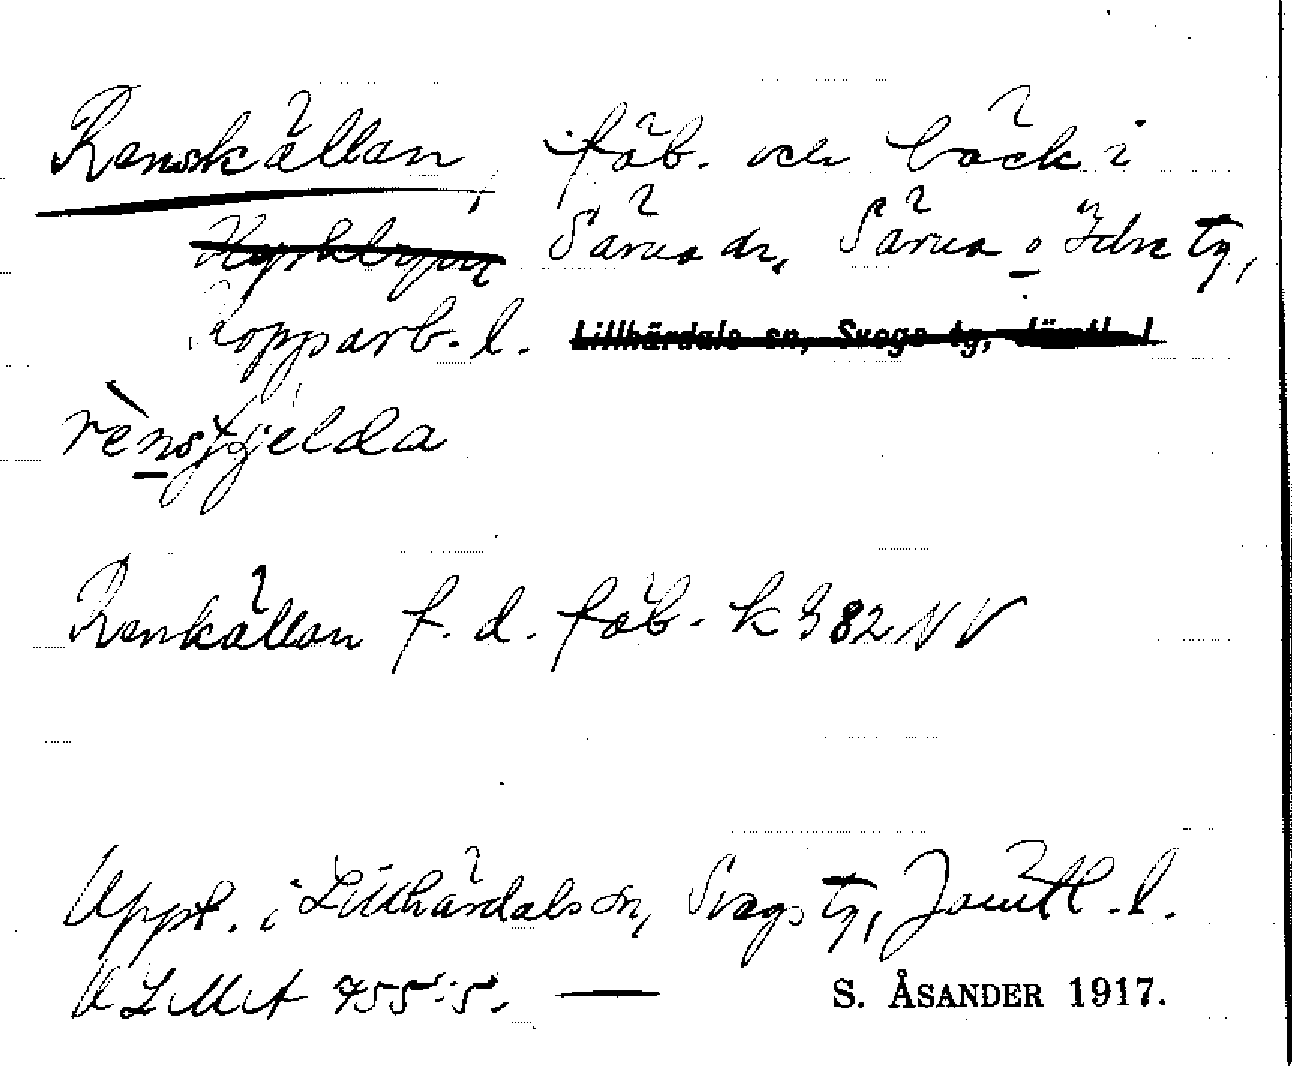 Renskällan, fäb. och bäck i
Särna sn, Särna o Idre tg,
Kopparb. l. Lillhärdals sn, Svegs tg, Jämtl. l.
Renkällan f. d. fäb. k 382 NV
Uppt. i Lillhärdals sn, Svegs tg, Jämtl. l.
ULMA 755:5. — S. ÅSANDER 1917.